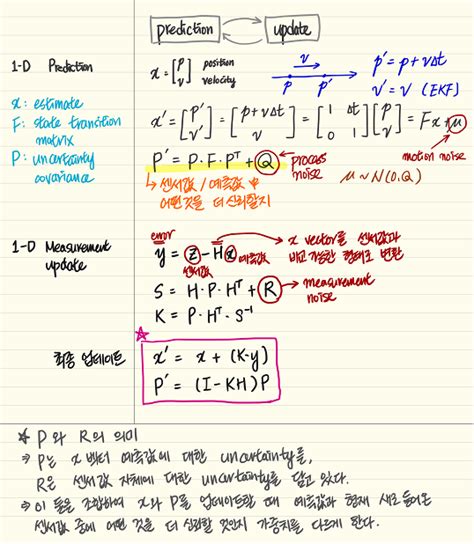 prediction update
1-D Prediction
x = [p v] position velocity
v
p p'
p' = p + vΔt
v' = v (EKF)
x: estimate
F: state transition matrix
P: uncertainty covariance
x' = [p' v'] = [p+vΔt v] = [1 Δt 0 1][p v] = Fx + μ
motion noise
P' = P·F·Pᵀ + Q process noise
μ ~ N(0.Q)
↳ 센서값 / 예측값 中
어떤것을 더 신뢰할지
1-D Measurement update
error
y = z - Hx
센서값 예측값
x vector를 센서값과
비교 가능한 형태로 변환
S = H·P·Hᵀ + R measurement noise
K = P·Hᵀ·S⁻¹
★
최종 업데이트
x' = x + (K·y)
P' = (I - KH)P
* P와 R의 의미
⇒ P는 x 벡터 예측값에 대한 uncertainty를,
R은 센서값 자체에 대한 uncertainty를 담고 있다.
⇒ 이 둘을 조합하여 x와 P를 업데이트할 때 예측값과 현재 새로 들어온
센서값 중에 어떤 것을 더 신뢰할 것인지 가중치를 다르게 한다.